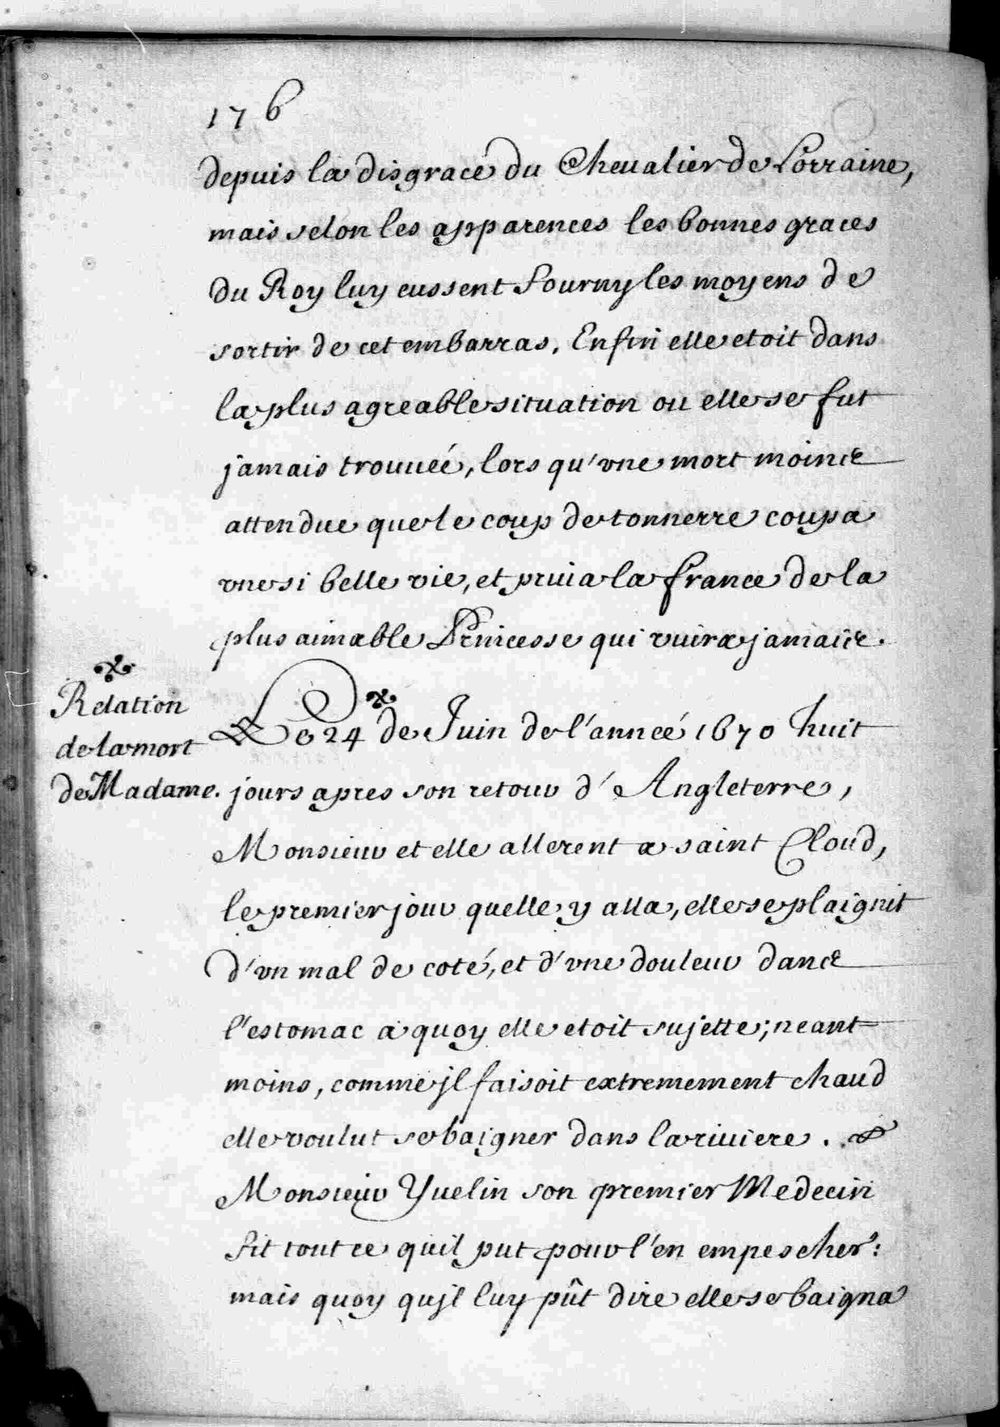 176
depuis la disgracé du Chevalier de Lorraine,
mais selon les apparences les bonnes graces
du Roy luy eussent fourny les moyens de
sortir de cet embarras. Enfin elle etoit dans
la plus agreable situation ou elle se fut
jamais trouueé, lors qu'vne mort moins
attendue que le coup de tonnerre coupa
vne si belle vie, et priua la france de la
plus aimable Princesse qui viura jamais.
Relation
de la mort
de Madame.
Le 24 de Juin de l'anneé 1670 huit
jours apres son retour d'Angleterre,
Monsieur et elle allerent a saint Cloud,
le premier jour quelle y alla, elle se plaignit
d'vn mal de coté, et d'vne douleur dans
l'estomac a quoy elle etoit sujette; neant=
moins, comme jl faisoit extremement chaud
elle voulut se baigner dans la riuiere.
Monsieur Yuelin son premier Medecin
fit tout ce quil put pour l'en empescher:
mais quoy qujl luy pût dire elle se baigna